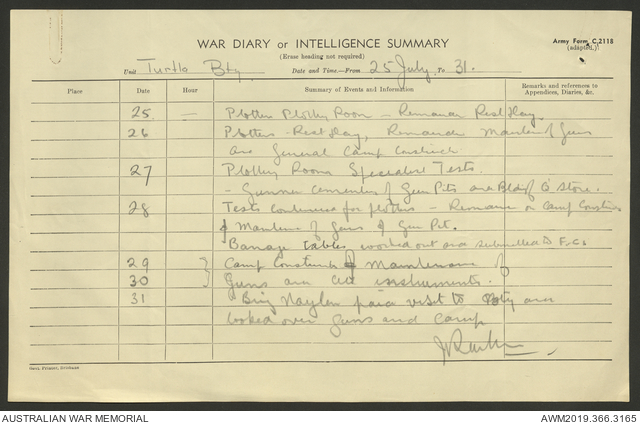 WAR DIARY or INTELLIGENCE SUMMARY
Army Form C.2118
(adapted.)
(Erase heading not required)
Unit Turtle Bty Date and Time—From 25 July to 31.
Place Date Hour Summary of Events and Information Remarks and references to Appendices, Diaries, &c.
25 — Plotters Plotting Room – Remainder Rest Day.
26 Plotters - Rest Day, Remainder Mainten of Guns
and General Camp Construct
27 Plotting Room Specialist Tests.
– Gunner cementing of Gun Pits and Bldg of Q Store.
28 Tests continued for plotters – Remainder on Camp Construction
& Mainten of Guns & Gun Pit.
Barrage tables worked out and submitted to
29 Camp Construction & Maintenance of
30 Guns and all instruments.
31 Brig Naylor paid visit to Bty and
looked over guns and camp
Govt. Printer, Brisbane
AUSTRALIAN WAR MEMORIAL
AWM2019.366.3165